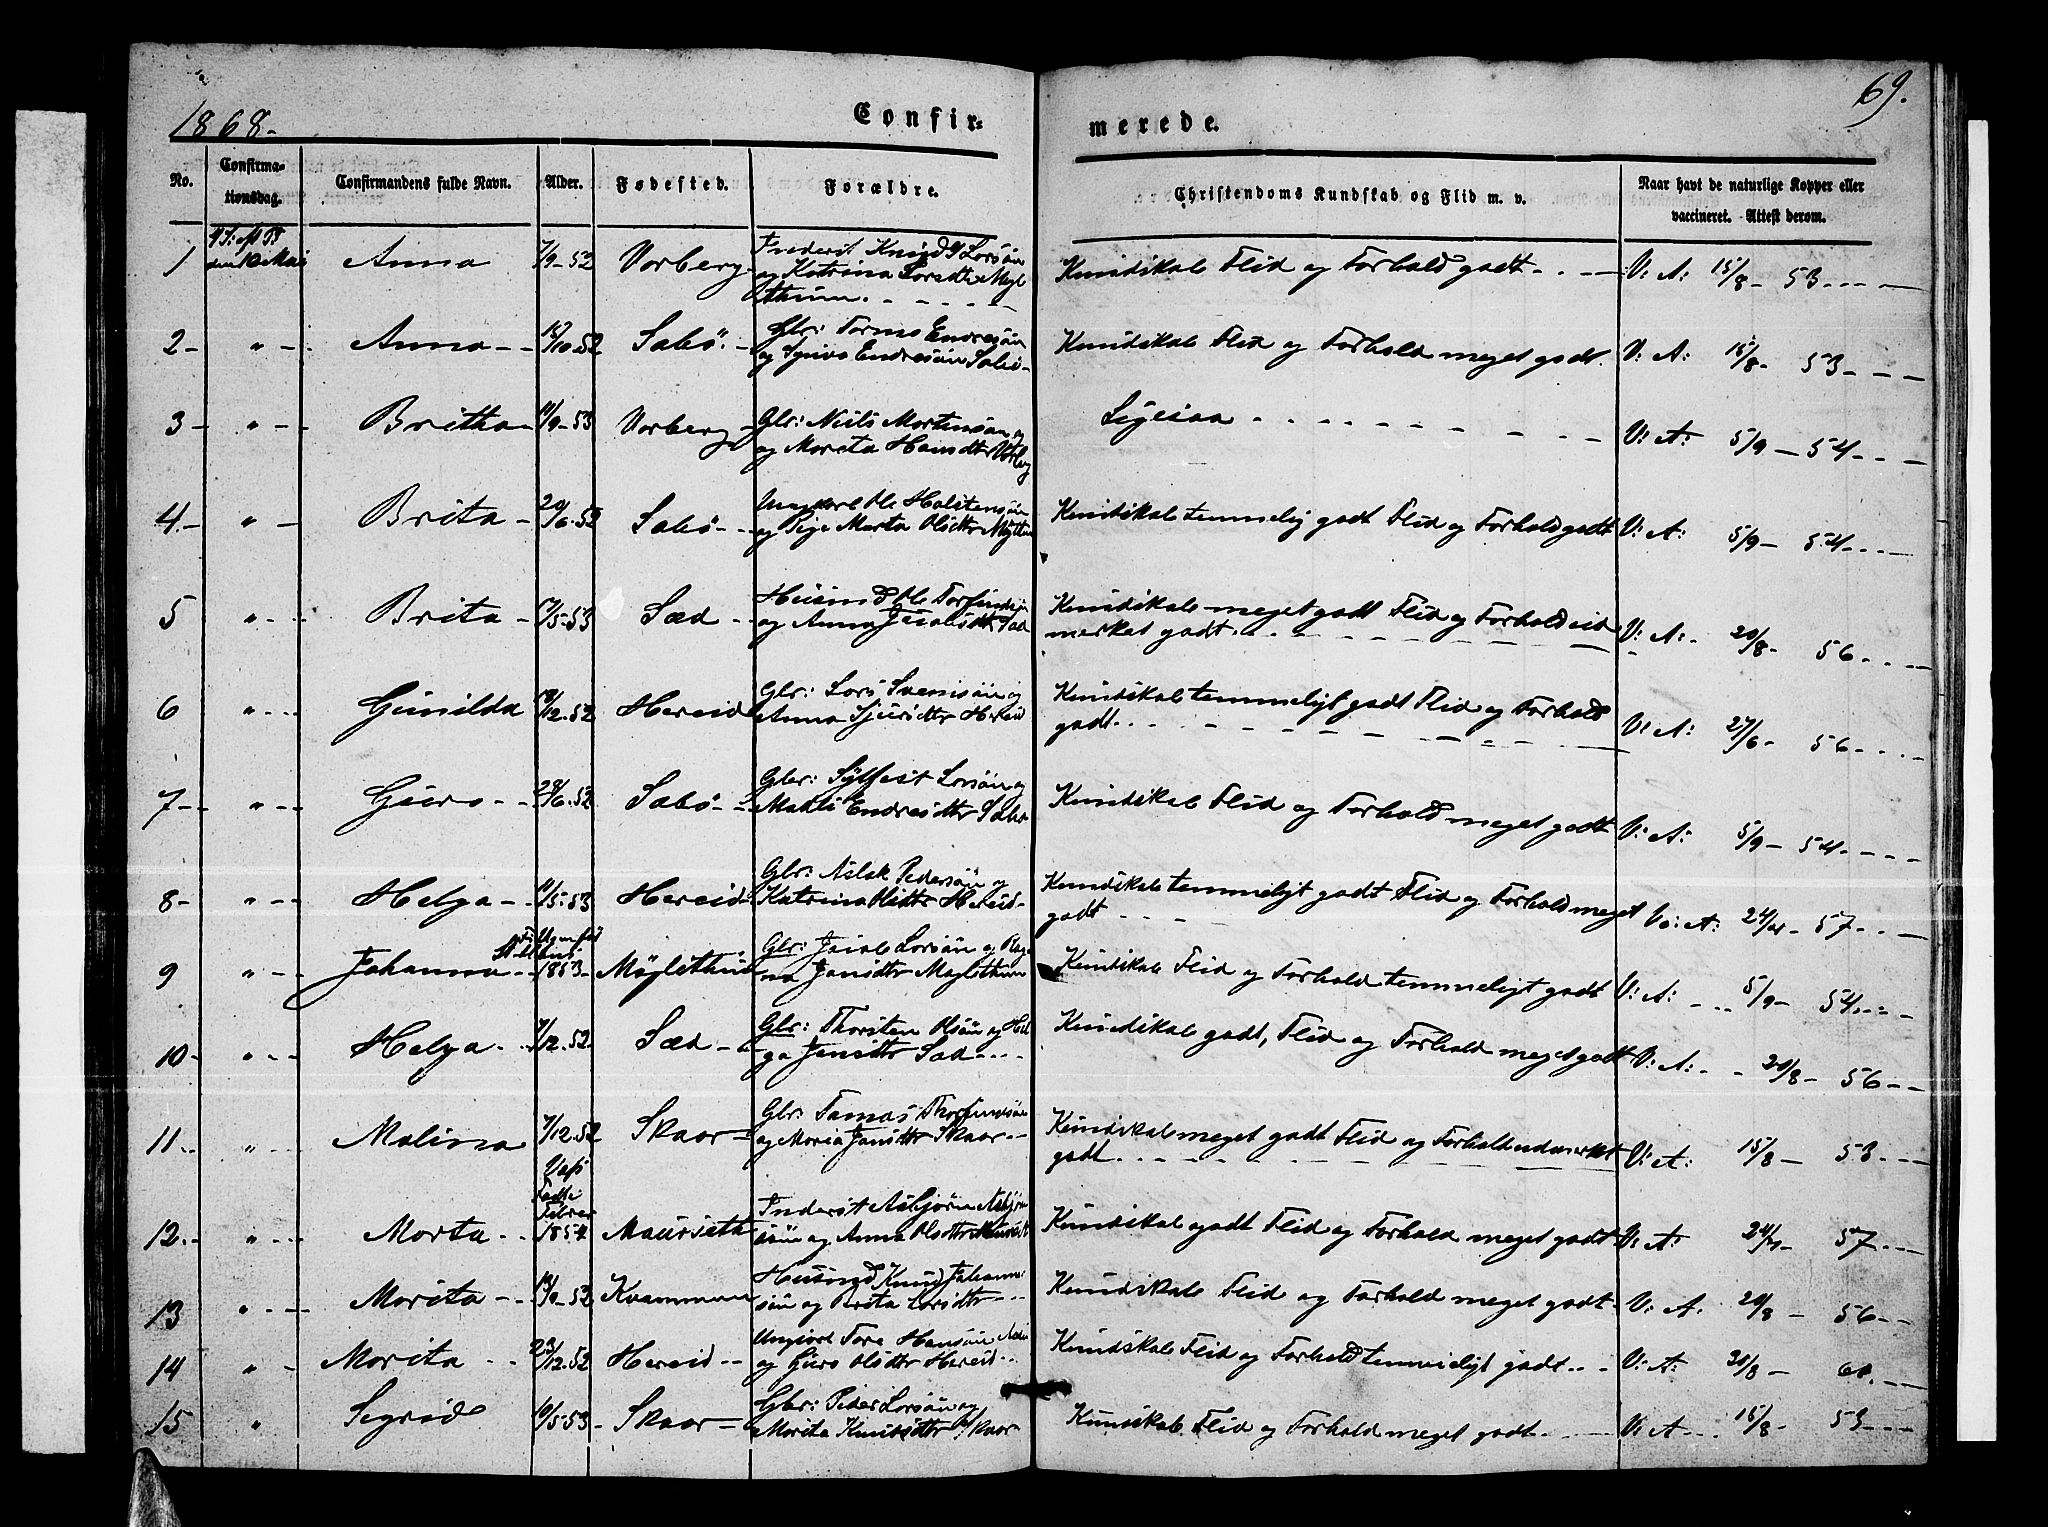 1868.
Confir=
merede.
69.
No.
Confirma-
tionsdag.
Confirmandens fulde Navn.
Alder.
Fødested.
Forældre.
Christendoms Kundskab og Flid m. v.
Naar havt de naturlige Kopper eller
vaccineret. Attest derom.
1 den 10 Mai Anna 7/9-53 Vorberg Knud Larsön
og Katrina Larsdtr Mögle
thun
Kundskab Flid og Forhold godt V: A: 15/8 - 53
2 " Anna /10-52 Sabö Glr: Endresön
og Endresdtr Sabö
Kundskab Flid og Forhold meget godt. V: A: 15/8 - 53
3 " Britha 11/9-53 Vorberg Glr: Niels Mortensön og
og Marita Hansdtr
Ligesaa V: A: 5/9 - 54
4 " Brita 20/6-52 Sabö Ungkarl Ole Halstensön
og Pige Marta Olsdtr
Kundskab temmelig godt Flid og Forhold godt V: A: 5/9 - 54
5 " Brita 17/5-53 Sæd Huusmd Ole Torfindsön
og Anna Jacobsdtr Sæd
Kundskab meget godt Flid og Forhold ud
mærket godt V: A: 20/8 - 56
6 " Gunilda 18/12-52 Hereid Glr: Lars Svensön og
Anna Sjursdtr Hereid
Kundskab temmeligt godt Flid og Forhold
godt V: A: 27/6 - 56
7 " Guro 28/6-52 Sabö Gbr: Sylfest Larsön og
Endresdtr Sabö
Kundskab Flid og Forhold meget godt V: A: 5/9 - 54
8 " Helga 11/5-53 Hereid Glr: Aslak Pedersön og
Katrina Olsdtr Hereid
Kundskab temmeligt godt Flid og Forhold meget
godt A: 24/ - 57
9 " Johanna 1853 Möglethun Glr: Jacob Larsön og Rag
na Jansdtr Möglethun
Kundskab Flid og Forhold temmeligt godt V: A: 5/9 - 54
10 " Helga 7/12-52 Sæd Glr: Thorsten Olsön og Hel
ga Jansdtr Sæd
Kundskab godt, Flid og Forhold meget godt V: A: 20/8 - 56
11 " Malina 7/12-52 Skaar Glr: Tomas Thorfindsön
og Maria Jansdtr Skaar
Kundskab meget godt Flid og Forhold udmærket
godt V: A: 15/8 - 53
12 " Marta
Februar
1854 Maurseth Inderst Asbjörn Asbjörn
sön og Anna Olsdtr Maurseth
Kundskab godt Flid og Forhold meget godt V: A: 24/ - 57
13 " Marita 13/9-52 Kvammen Huusmd Knud Johanne
sön og Brita Larsdtr
Kundskab Flid og Forhold meget godt V: A: 20/8 - 56
14 " Marita 23/12-52 Hereid Ungkarl Tore Hansön
og Guro Olsdtr Hereid
Kundskab Flid og Forhold temmeligt godt V: A: 30/8 - 60
15 " Segrid 10/5-53 Skaar Gbr: Peder Larsön og
Marita Knudsdtr Skaar
Kundskab Flid og Forhold meget godt V: A 15/8 - 53